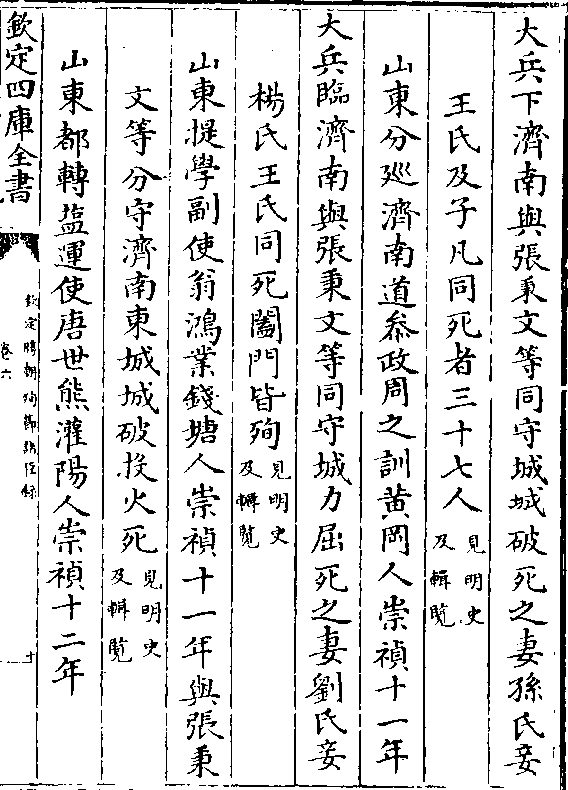 大兵下濟南與張秉文等同守城城破死之妻孫氏妾
王氏及子凡同死者三十七人見明史及輯覽
山東分巡濟南道叅政周之訓黄岡人崇禎十一年
大兵臨濟南與張秉文等同守城力屈死之妻劉氏妾
楊氏王氏同死闔門皆殉見明史及輯覽
山東提學副使翁鴻業錢塘人崇禎十一年與張秉
文等分守濟南東城城破投火死見明史及輯覽
山東都轉鹽運使唐世熊灌陽人崇禎十二年
欽定四庫全書
欽定勝朝殉節諸臣録
卷六
十